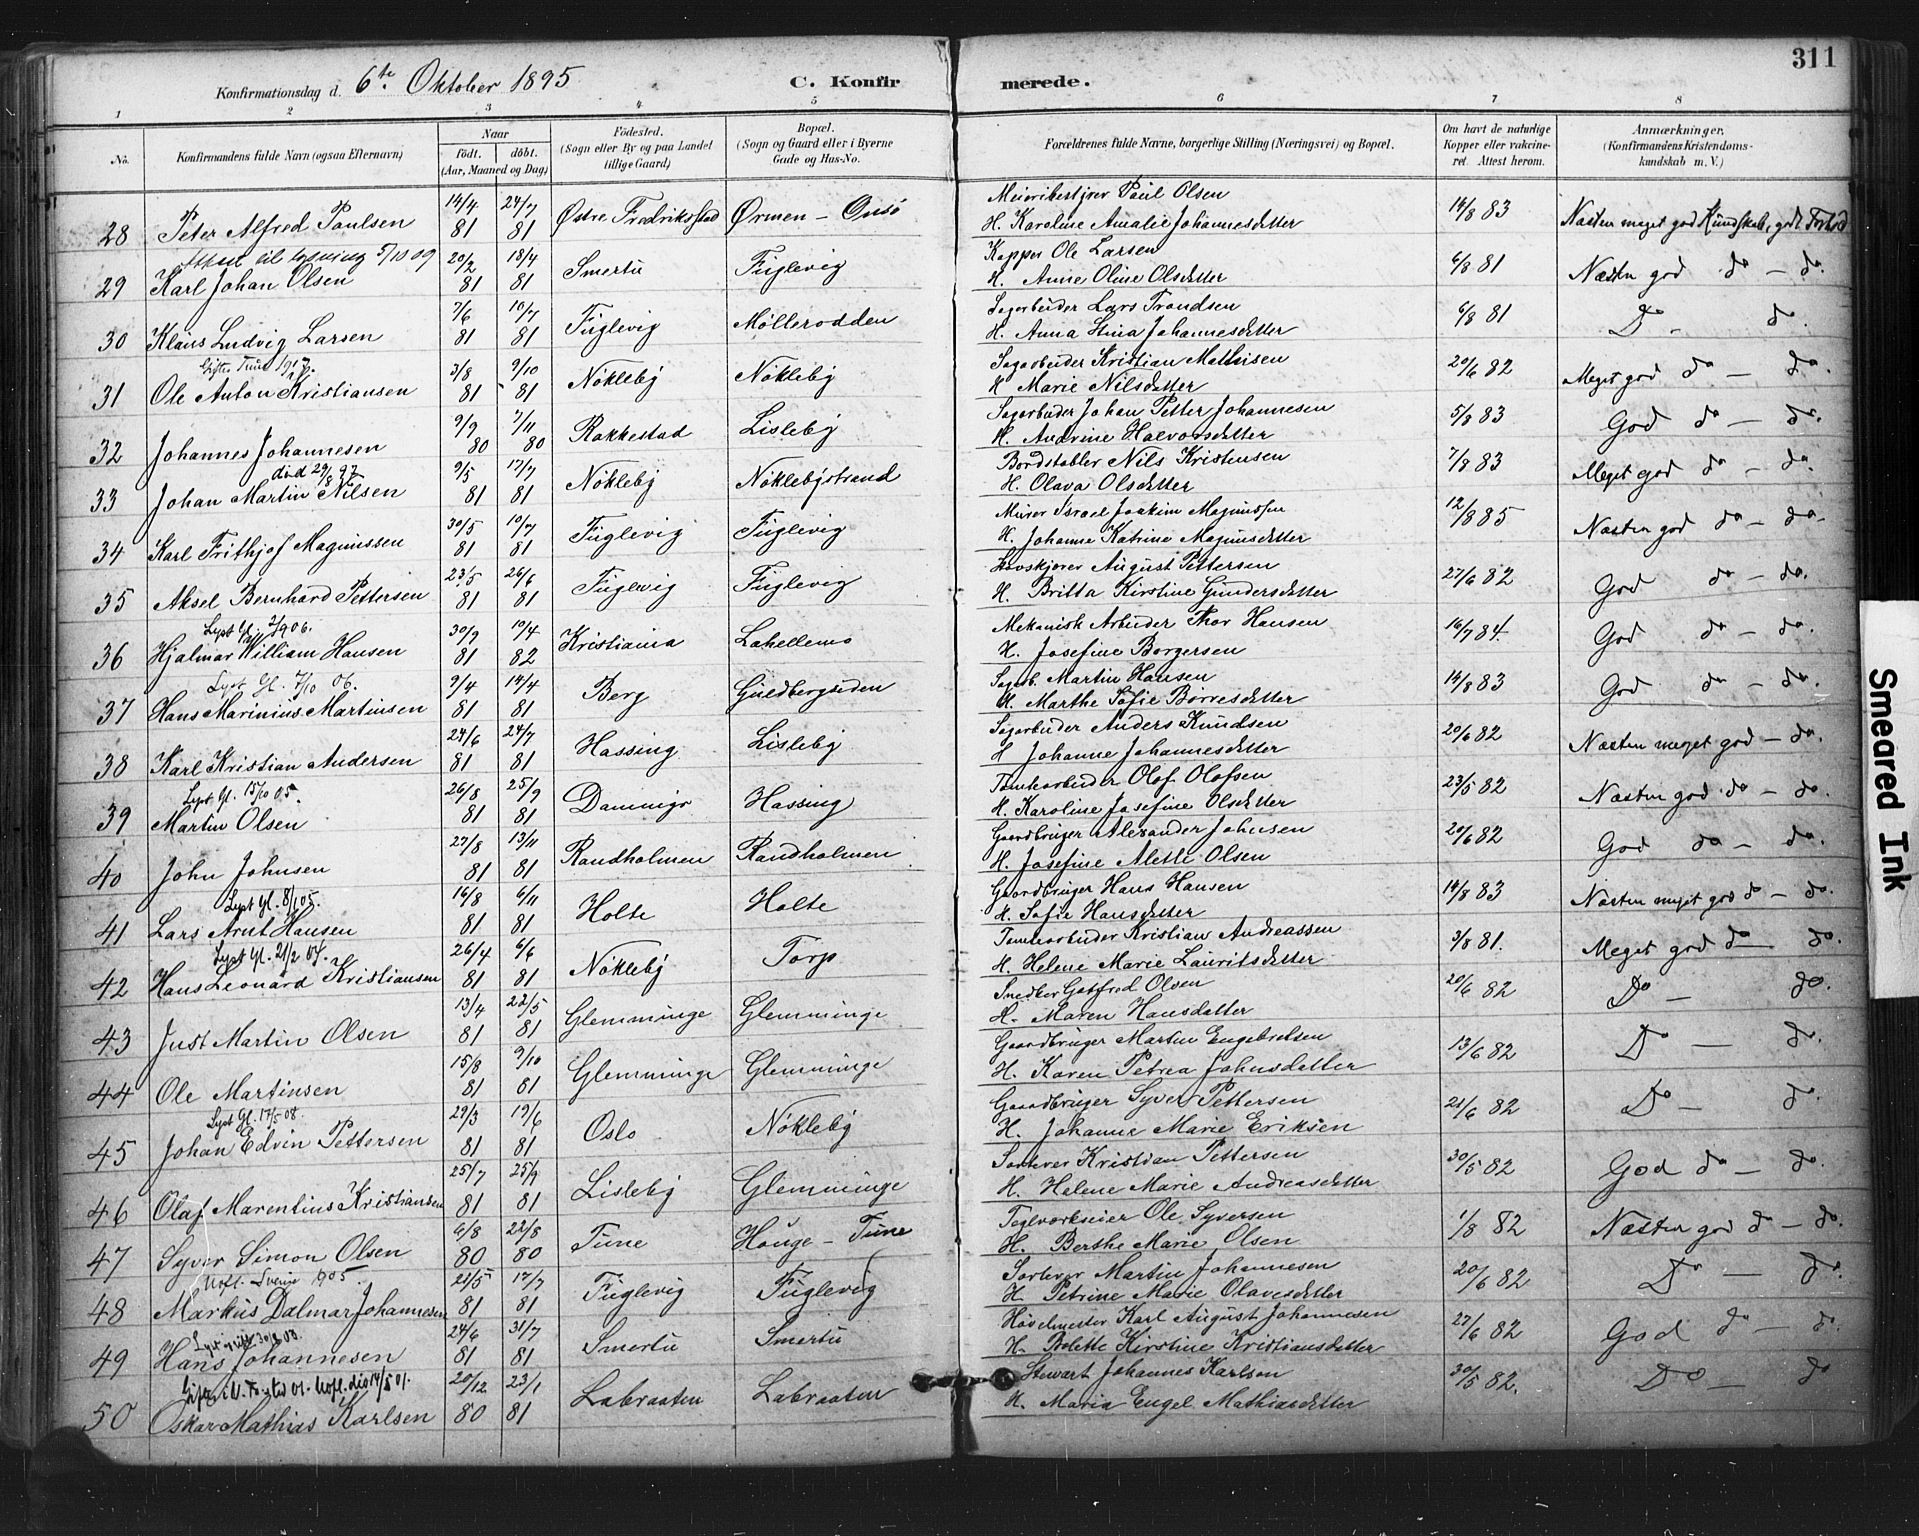 311
Konfirmationsdag d. 6te Oktober 1895. C. Konfirmerede.
1 2 3 4 5 6 7 8
No. Konfirmandens fulde Navn (ogsaa Efternavn) Naar födt. döbt. (Aar, Maaned og Dag) Födested. (Sogn eller By og paa Landet tillige Gaard) Bopæl. (Sogn og Gaard eller i Byerne Gade og Hus-No. Forældrenes fulde Navne, borgerlige Stilling (Næringsvei) og Bopæl. Om havt de naturlige Kopper eller vakcineret. Attest herom. Anmærkninger, (Konfirmandens Kristendomskundskab m. V.)
28 Peter Alfred Paulsen 14/4 81 24/7 81 Østre Fredriksstad Ørmen - Onsö Paul Olsen H. Karoline Amalie Johannesdatter 14/8 83 Næsten meget god Kundskab, godt Forhold
Attest til lysning 5/10 09
29 Karl Johan Olsen 20/2 81 18/4 81 Smertu Fuglevig Ole Larsen H. Anne Oline Olsdatter 6/8 81 Næsten god do - do.
30 Klaus Ludvig Larsen 7/6 81 10/7 81 Fuglevig Møllerodden Sagarbeider Lars Trondsen H. Anna Stina Johannesdatter 6/8 81 Do - do.
Gift Tune 1917.
31 Ole Anton Kristiansen 3/8 81 9/10 81 Nökleby Nökleby Sagarbeider Kristian Mathisen H Marie Nilsdatter 20/6 82 Meget god do - do.
32 Johannes Johannesen 9/9 80 7/11 80 Rakkestad Lisleby Sagarbeider Johan Petter Johannesen H. Andrine Halvorsdatter 5/8 83 God do - do.
död 29/8 97
33 Johan Martin Nilsen 9/5 81 17/7 81 Nökleby Nöklebystrand Bordstabler Nils Kristensen H. Olava Olsdatter 7/8 83 Meget god do - do.
34 Karl Frithjof Magnussen 30/5 81 10/7 81 Fuglevig Fuglevig Murer Israel Joakim Magnussen H. Johanne Katrine Magnusdatter 12/8 85 Næsten god do - do.
35 Aksel Bernhard Pettersen 23/5 81 26/6 81 Fuglevig Fuglevig August Pettersen H. Britta Kirstine Gundersdatter 27/6 82 God do - do.
Lyst Gl. 2/9 06.
36 Hjalmar William Hansen 30/9 81 10/4 82 Kristiania Lahellemo Mekanisk Arbeider Thor Hansen H. Josefine Borgersen 16/7 84 God do - do.
Lyst Gl. 7/10 06.
37 Hans Marinius Martinsen 9/4 81 14/4 81 Berg Guldbergsiden Sagarb. Martin Hansen H. Marthe Sofie Börresdatter 14/8 83 God do - do.
38 Karl Kristian Andersen 24/6 81 24/7 81 Hassing Lisleby Sagarbeider Anders Knudsen H Johanne Johannesdatter 20/6 82 Næsten meget god - do.
Lyst Gl. 15/10 05.
39 Martin Olsen 26/8 81 25/9 81 Hassing Tomtearbeider Olof Olofsen H. Karoline Josefine Olsdatter 23/5 82 Næsten god do - do.
40 John Johnsen 27/8 81 13/11 81 Randholmen Randholmen Gaardbruger Alexander Johnsen H. Josefine Alette Olsen 20/6 82 God do - do.
Lyst Gl. 8/1 05.
41 Lars Arnt Hansen 16/8 81 6/11 81 Holte Holte Gaardbruger Hans Hansen H. Sofie Hansdatter 14/8 83 Næsten meget god do - do.
Lyst Gl. 21/2 04.
42 Hans Leonard Kristiansen 26/4 81 6/6 81 Nökleby Torp Tomtearbeider Kristian Andreassen H. Helene Marie Lauritsdatter 3/8 81. Meget god do - do.
43 Just Martin Olsen 13/4 81 22/5 81 Glemminge Glemminge Snedker Gotfred Olsen H. Maren Hansdatter 20/6 82 Do - do.
44 Ole Martinsen 15/8 81 9/10 81 Glemminge Glemminge Gaardbruger Martin Engebretsen H. Karen Petrea Johnsdatter 13/6 82 Do - do.
Lyst Gl. 17/5 08.
45 Johan Edvin Pettersen 29/3 81 19/6 81 Oslo Nökleby Gaardbruger Syver Pettersen H. Johanne Marie Eriksen 21/6 82 Do - do.
46 Olaf Marentius Kristiansen 25/7 81 25/9 81 Lisleby Glemminge Sorterer Kristian Pettersen H. Helene Marie Andreasdatter 30/5 82 God do - do.
47 Syver Simon Olsen 6/8 80 22/8 80 Tune Hauge - Tune Teglverkseier Ole Syversen H. Berthe Marie Olsen 1/8 82 Næsten god do - do.
Udfl. Sverige 1905.
48 Markus Dalmar Johannesen 21/5 81 17/7 81 Fuglevig Fuglevig Sorterer Martin Johannesen H Petrine Marie Olavesdatter 20/6 82 Do - do.
49 Hans Johannesen 24/6 81 31/7 81 Smertu Smertu Hövelmester Karl August Johannesen H. Bolette Kirstine Kristiansdatter 27/6 82 God do - do.
50 Oskar Mathias Karlsen 20/12 80 23/1 81 Labraaten Labraaten Stewart Johannes Karlson H. Maria Engel Mathiasdatter 30/5 82. Do - do
Smeared Ink